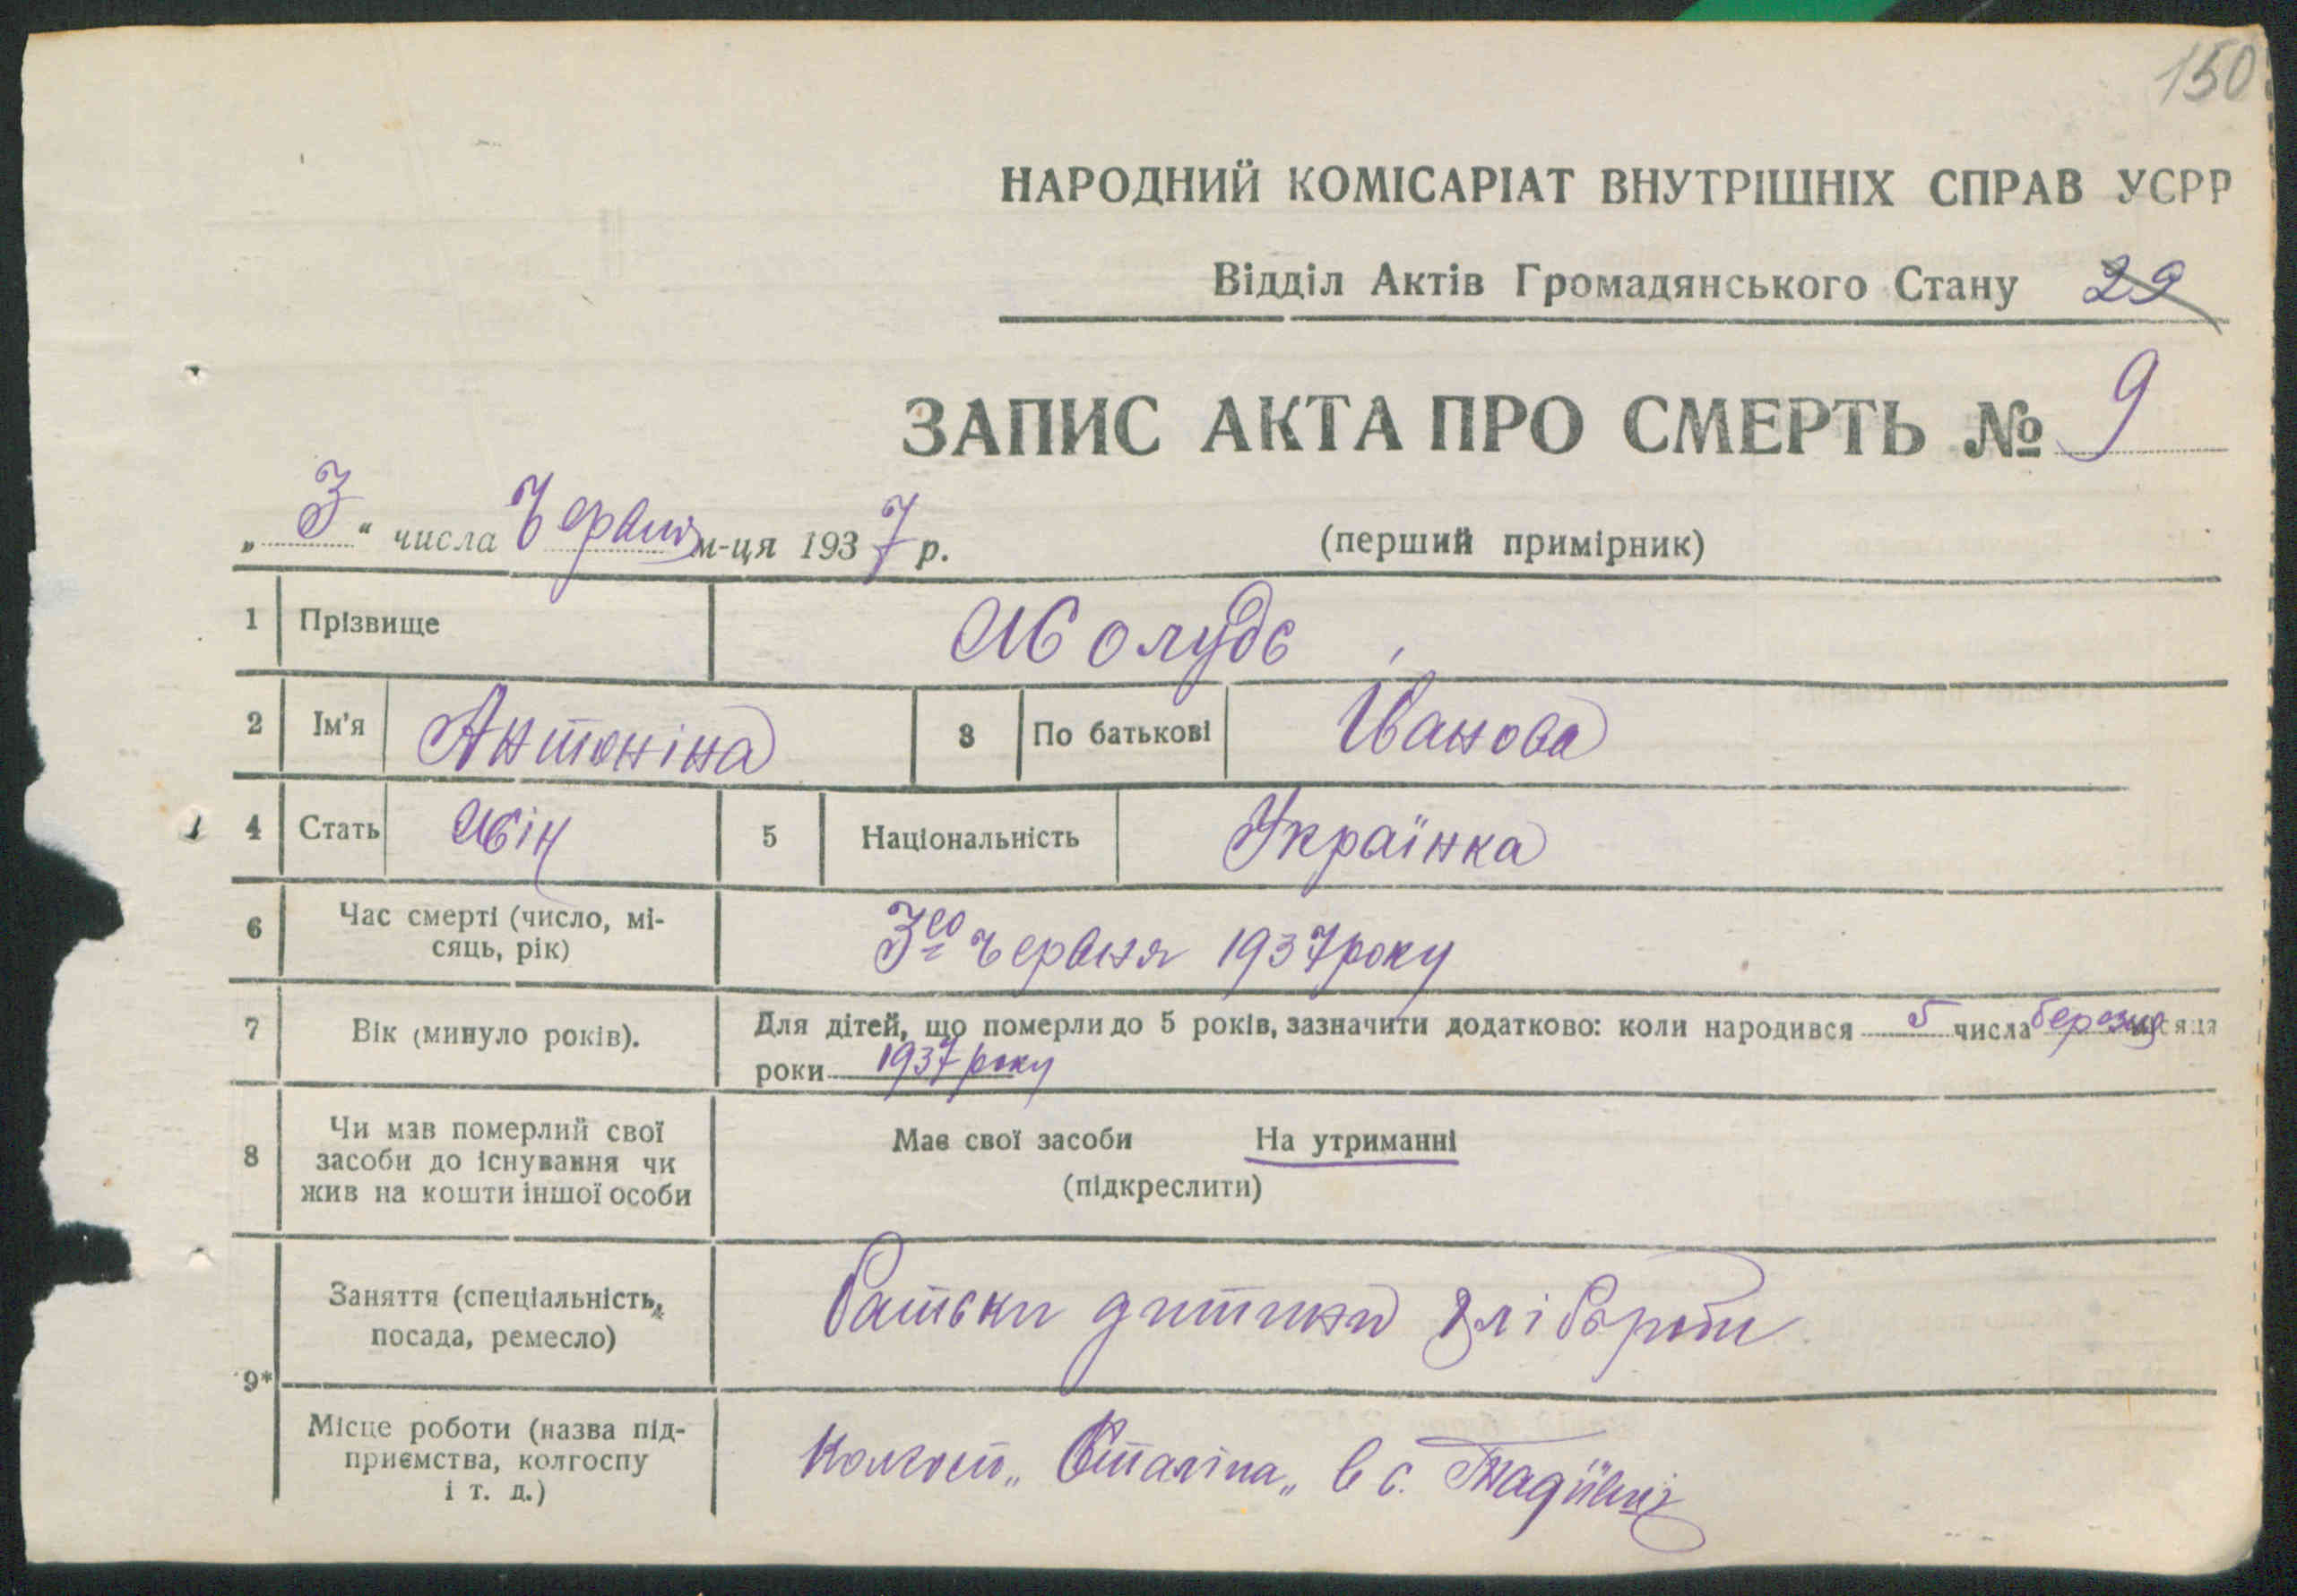 150
НАРОДНИЙ КОМІСАРІАТ ВНУТРІШНІХ СПРАВ УСРР
Відділ Актів Громадянського Стану 29
ЗАПИС АКТА ПРО СМЕРТЬ № 9
„ 3 “ числа Червня м-ця 1937 р. (перший примірник)
1 Прізвище Жолудь
2 Ім'я Антоніна 3 По батькові Іванова
4 Стать жін 5 Національність Українка
6 Час смерті (число, мі-
сяць, рік) 3го червня 1937 року
7 Вік (минуло років). Для дітей, що померли до 5 років, зазначити додатково: коли народився 5 числа березня місяця
роки 1937 року
8 Чи мав померлий свої
засоби до існування чи
жив на кошти іншої особи
Має свої засоби На утриманні
(підкреслити)
9*
Заняття (спеціальність,
посада, ремесло)
батьки дитини хлібороби
Місце роботи (назва під-
приємства, колгоспу
і т. д.)
Колгосп „Сталіна„ в с.